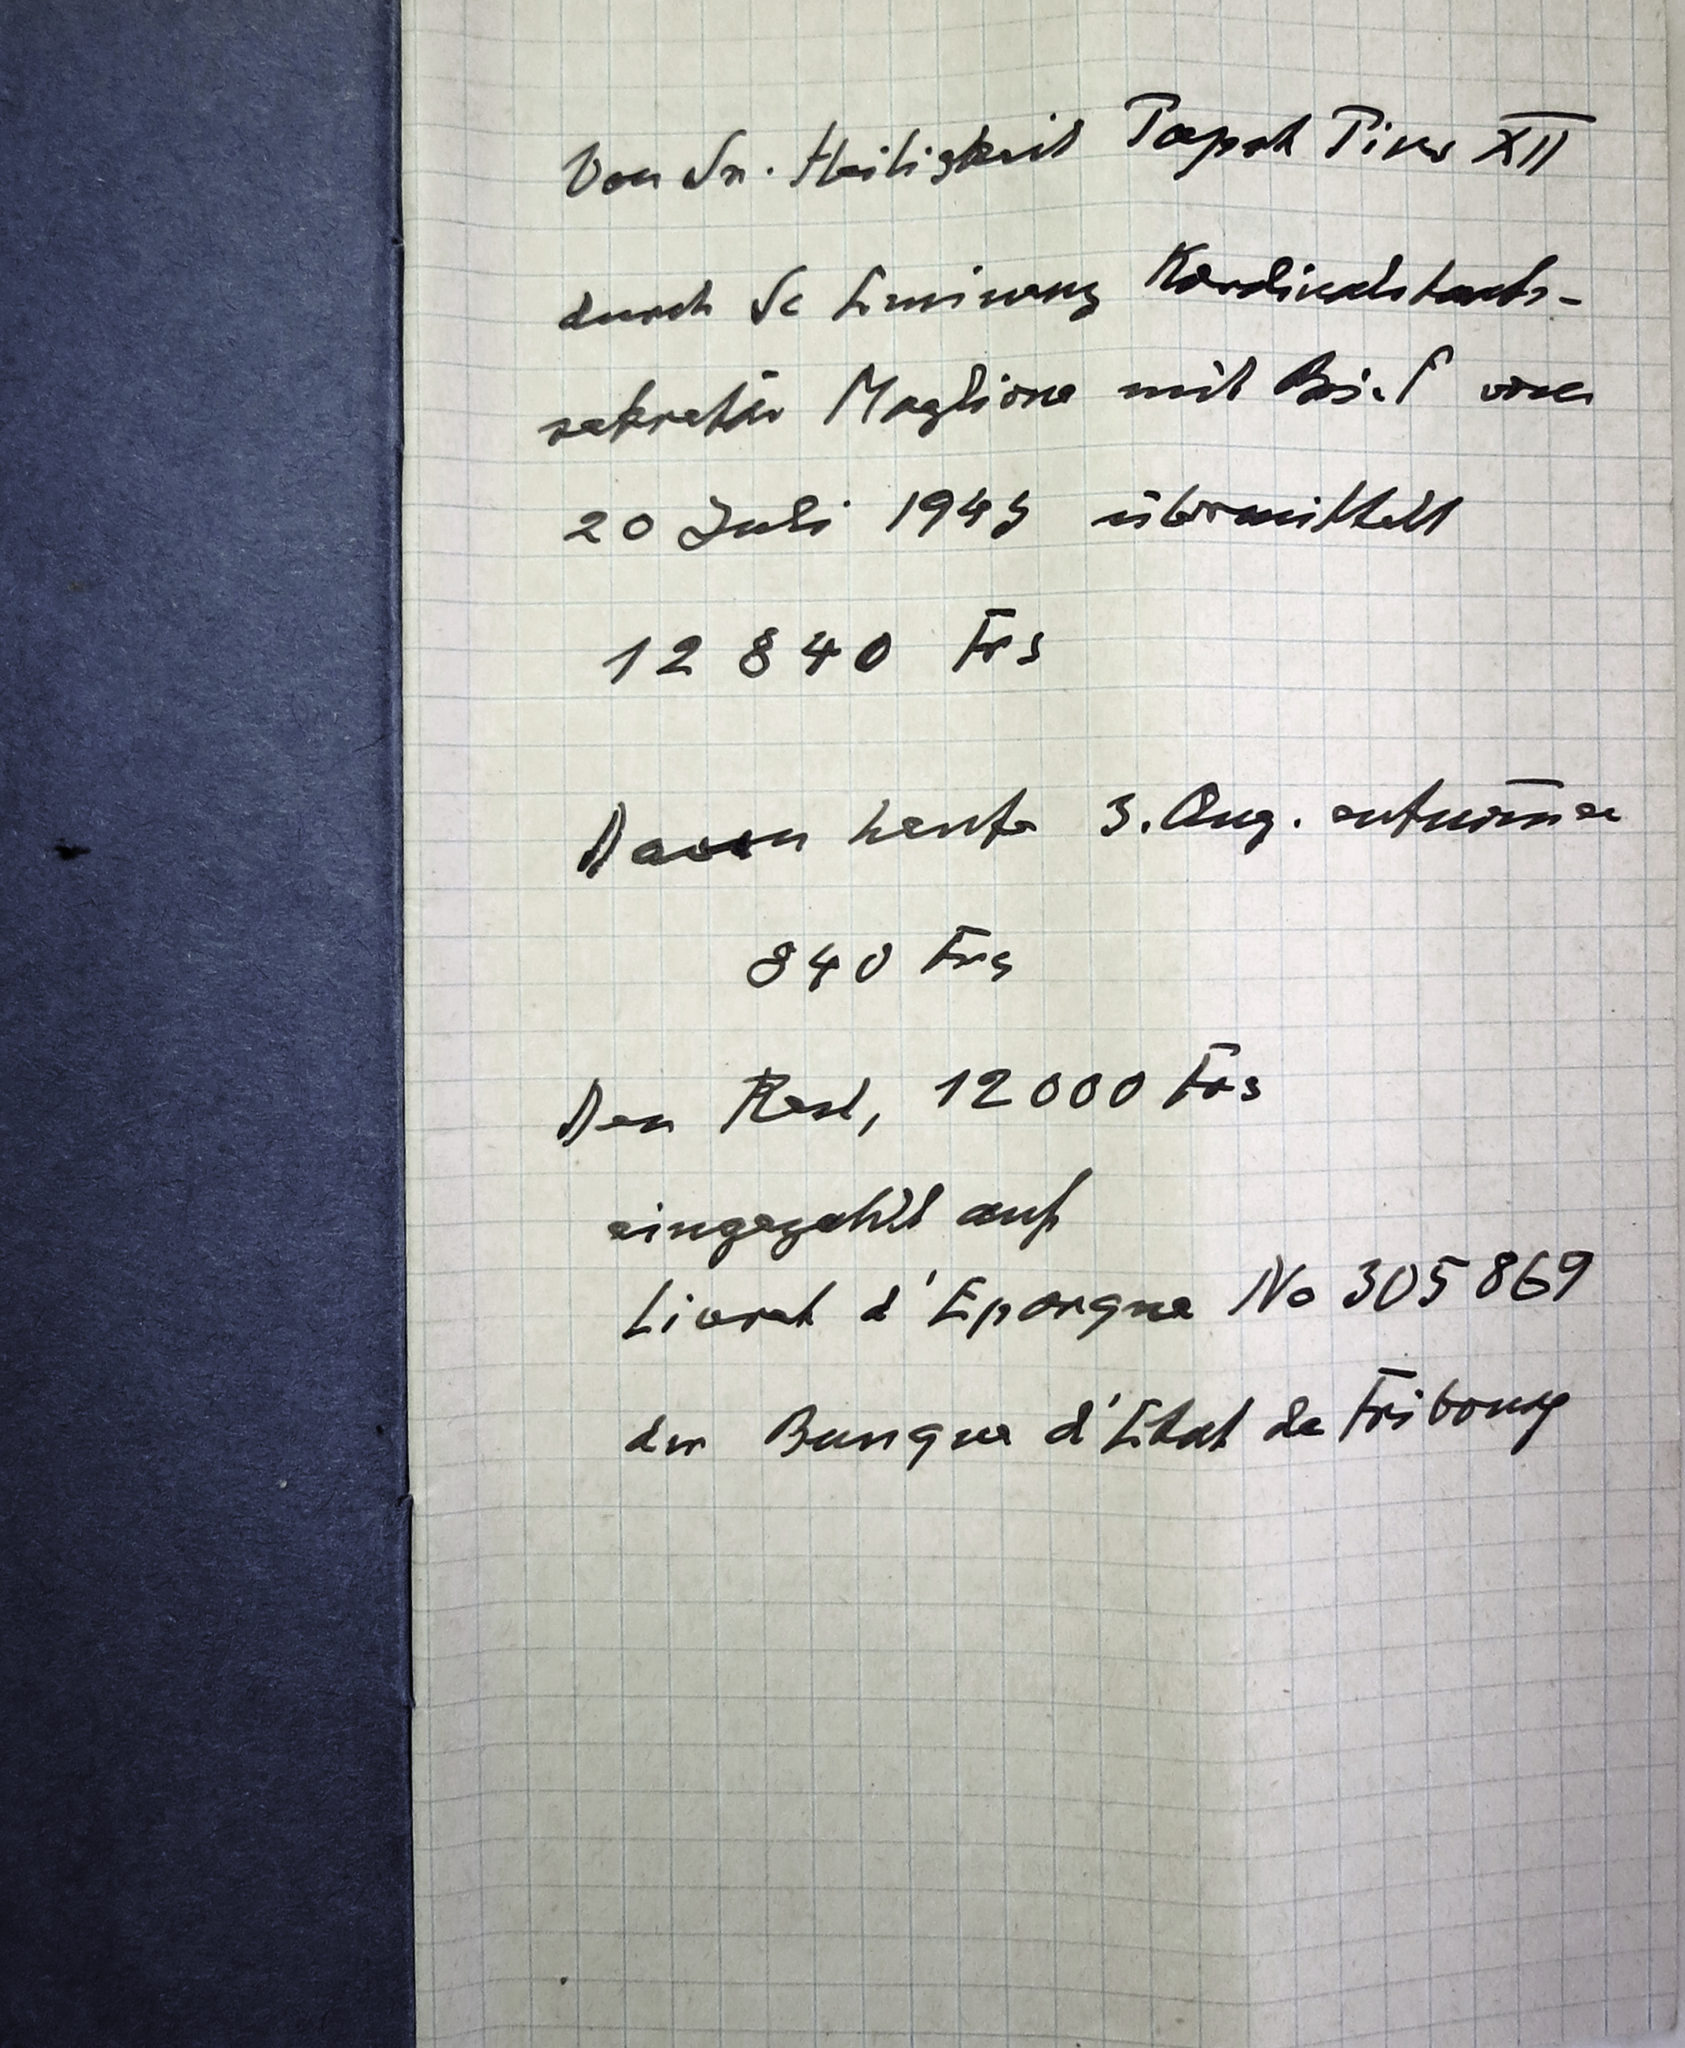 Von Sr. Heiligkeit Papst Pius XII
durch Se Eminenz Kardinalstaats-
sekretär Maglione mit Brief vom
20 Juli 1943 übermittelt
12 840 Frs
Davon heute 3. Aug. entnom̄en
840 Frs
Den Rest, 12000 Frs
eingezahlt auf
Livret d'Epargne No 305869
der Banque d'Etat de Fribourg